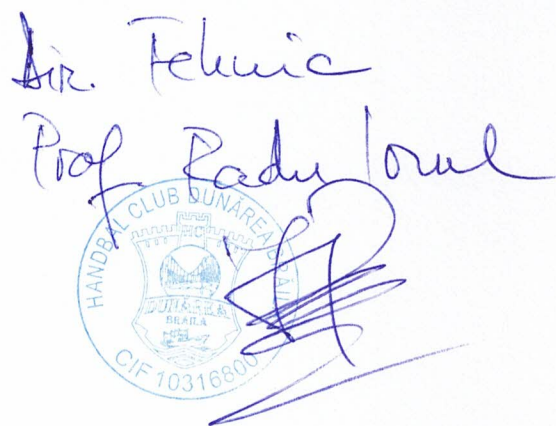 Dir. Tehnic
Prof. Radu Ionel
HANDBAL CLUB DUNĂREA BRĂILA
HC
DUNĂREA
BRĂILA
CIF 10316800